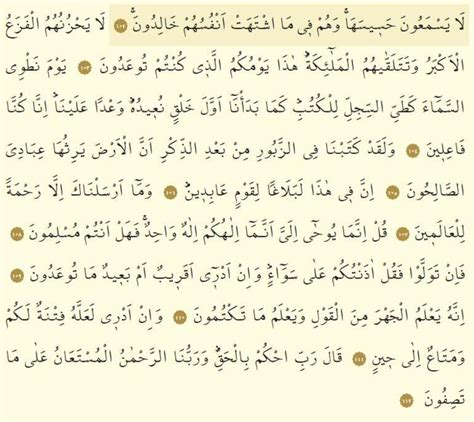 لَا يَسْمَعُونَ حَسٖيسَهَاۚ وَهُمْ فٖي مَا اشْتَهَتْ اَنْفُسُهُمْ خَالِدُونَۚ ﴿١٠٢﴾ لَا يَحْزُنُهُمُ الْفَزَعُ
الْاَكْبَرُ وَتَتَلَقّٰيهُمُ الْمَلٰٓئِكَةُۜ هٰذَا يَوْمُكُمُ الَّذٖي كُنْتُمْ تُوعَدُونَ ﴿١٠٣﴾ يَوْمَ نَطْوِي
السَّمَٓاءَ كَطَيِّ السِّجِلِّ لِلْكُتُبِۜ كَمَا بَدَأْنَٓا اَوَّلَ خَلْقٍ نُعٖيدُهُۜ وَعْدًا عَلَيْنَاۜ اِنَّا كُنَّا
فَاعِلٖينَ ﴿١٠٤﴾ وَلَقَدْ كَتَبْنَا فِي الزَّبُورِ مِنْ بَعْدِ الذِّكْرِ اَنَّ الْاَرْضَ يَرِثُهَا عِبَادِيَ
الصَّالِحُونَ ﴿١٠٥﴾ اِنَّ فٖي هٰذَا لَبَلَاغًا لِقَوْمٍ عَابِدٖينَۜ ﴿١٠٦﴾ وَمَٓا اَرْسَلْنَاكَ اِلَّا رَحْمَةً
لِلْعَالَمٖينَ ﴿١٠٧﴾ قُلْ اِنَّمَا يُوحٰٓى اِلَيَّ اَنَّمَٓا اِلٰهُكُمْ اِلٰهٌ وَاحِدٌۚ فَهَلْ اَنْتُمْ مُسْلِمُونَ ﴿١٠٨﴾
فَاِنْ تَوَلَّوْا فَقُلْ اٰذَنْتُكُمْ عَلٰى سَوَٓاءٍۜ وَاِنْ اَدْرٖٓي اَقَرٖيبٌ اَمْ بَعٖيدٌ مَا تُوعَدُونَ ﴿١٠٩﴾
اِنَّهُ يَعْلَمُ الْجَهْرَ مِنَ الْقَوْلِ وَيَعْلَمُ مَا تَكْتُمُونَ ﴿١١٠﴾ وَاِنْ اَدْرٖي لَعَلَّهُ فِتْنَةٌ لَكُمْ
وَمَتَاعٌ اِلٰى حٖينٍ ﴿١١١﴾ قَالَ رَبِّ احْكُمْ بِالْحَقِّۜ وَرَبُّنَا الرَّحْمٰنُ الْمُسْتَعَانُ عَلٰى مَا
تَصِفُونَ ﴿١١٢﴾